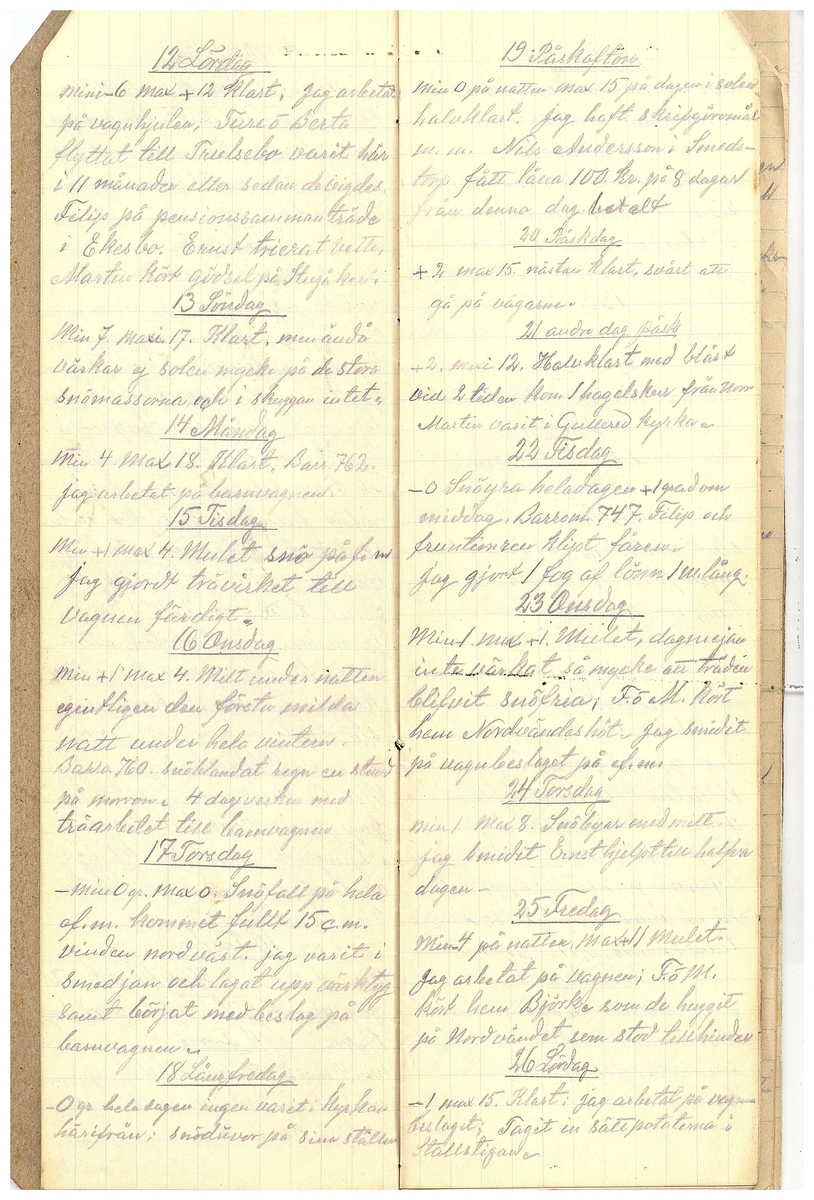 12 Lördag
mini -6 max +12 Klart; jag arbetat
på vagnhjulen; Ture ö Berta
flyttat till Truelsebo varit här
i 11 månader efter sedan de vigdes.
Filip på pensionssammanträde
i Ekesbo. Ernst trierat vette,
Martin kört gödsel på
13 Söndag
Min 7. maxi 17. Klart, men ändå
värkar ej solen mycke på de stora
snömassorna och i skuggan intet.
14 Måndag
Min 4. Max 18. Klart. Barr. 762.
jag arbetat på barnvagnen.
15 Tisdag
Min +1 max 4. Mulet snö på f.m
jag gjordt trävirket till
vagnen färdigt.
16 Onsdag
Min +1 max 4. Milt under natten
egentligen den första milda
natt under hela vintern.
Barro 760. snöblandat regn en stund
på morron. 4 dagsverken med
träarbetet till barnvagnen
17 Torsdag
-min 0 gr. max 0. Snöfall på hela
ef.m. kommit fullt 15 c.m.
vinden nordväst. jag varit i
smedjan och lagat upp värktyg
samt börjat med beslag på
barnvagnen.
18 Långfredag
-0 gr hela dagen ingen varit i Kyrkan
härifrån; snödrivor på sina ställen
19 Påskafton
Min 0 på natten max 15 på dagen i solen
halvklart. jag haft skrifgöromål
m. m. Nils Andersson i Smeds-
torp fått låna 100 Kr. på 8 dagar
från denna dag. betalt
20 Påskdag
+2 max 15. nästan Klart, svårt att
gå på vägarne.
21 andre dag påsk
+2. maxi 12. Halvklart med blåst
vid 2 tiden kom 1 hagelskur från Norr
Martin varit i Gullered Kyrka.
22 Tisdag
-0 Snöyra heladagen +1 grad om
middag. Barrom. 747. Filip och
fruntimren klipt fåren.
jag gjort 1 fog af lönn 1 m lång.
23 Onsdag
Min 1. max +1. Mulet, dagmejan
inte värkat så mycke att träden
blifvit snöfria; F. o M. Kört
hem Nordvändeshöt. jag smidit
på vagnbeslaget på ef.m.
24 Torsdag
min 1 max 8. Snöbyar med
jag smidit Ernst hjelpt till halfva
dagen -
25 Fredag
Min -4 på natten, max +11 Mulet.
Jag arbetat på vagnen; F. o M.
kört hem Björke som de hugget
på Nordvändet som stod till hinder
26 Lördag
-1 max 15. Klart; jag arbetat på vagn-
beslaget; Taget in sättepotaterna i
Stallstigan.